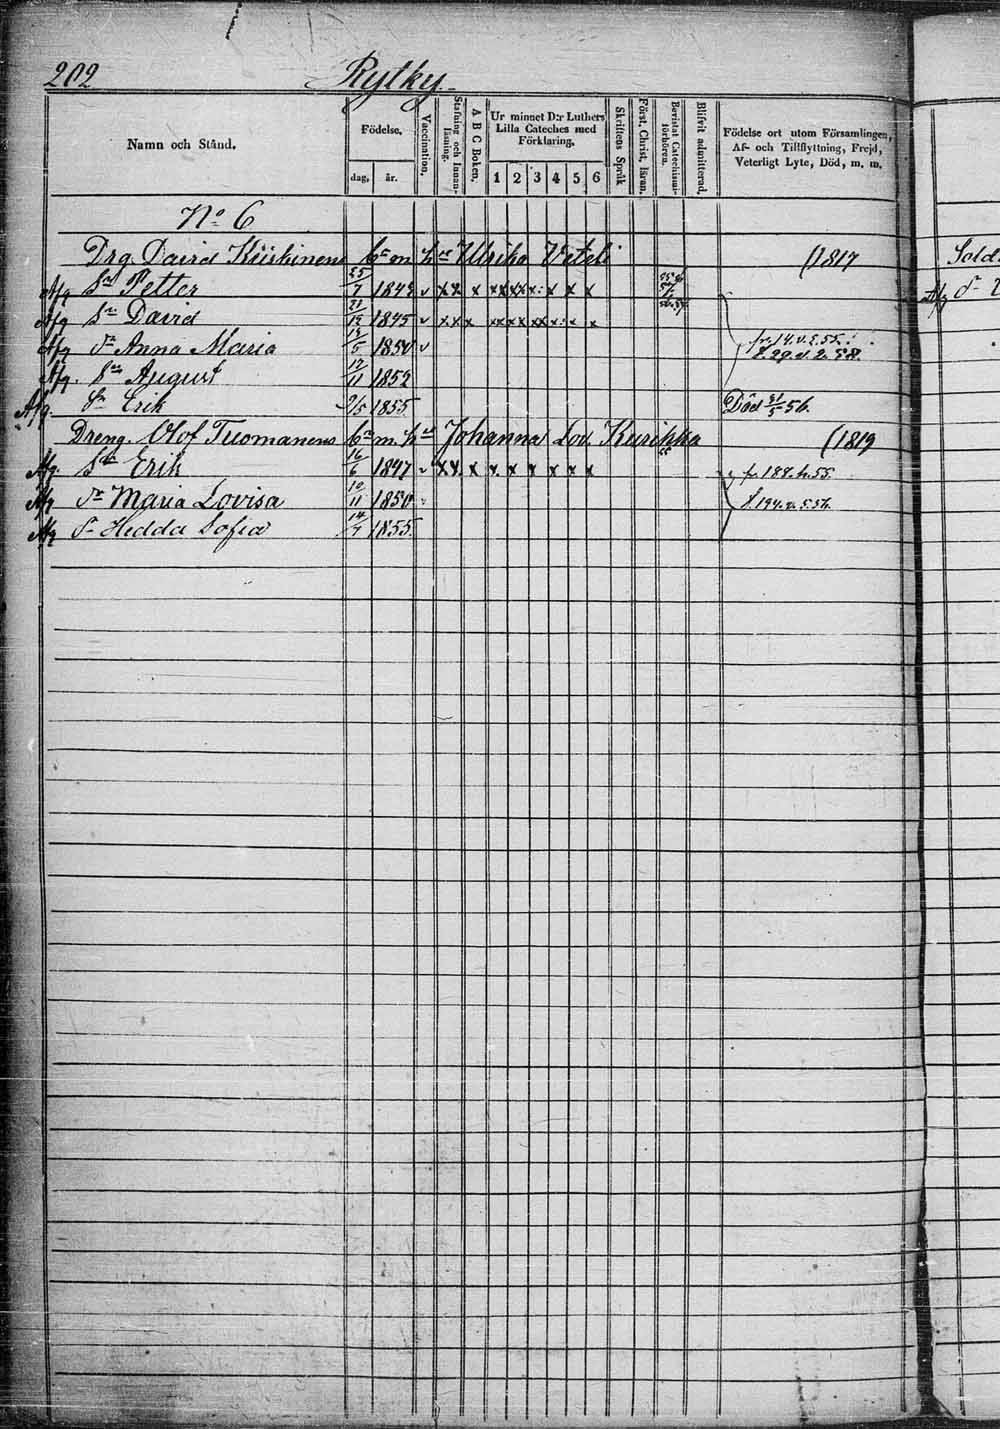 202 Rytky
Namn och Stånd.
Födelse.
dag, år.
Vaccination.
Stafning och Innan-läsning.
A B C Boken.
Ur minnet D:r Luthers Lilla Cateches med Förklaring.
1 2 3 4 5 6
Skriftens Språk
Först. Christ. läran.
Bevistat Catechismi-förhören.
Blifvit admitterad.
Födelse ort utom Församlingen, Af- och Tillflyttning, Frejd, Veterligt Lyte, Död, m. m.
No 6
Drg. David Kiiskinens bn m. hu Ulrika Veteli (1817
Afg Sn Petter 25/7 1842 v x x x x x x x x x x
Afg Sn David 21/12 1845 v x x x x x x x x x
Afg Dr Anna Maria /5 1850 v fr. 14. v. s. 55.
Afg. Sn August 12/11 1852 t. 29. v. 2. 58.
Afg. Sn Erik 9/5 1855 Död 31/5 56.
Dreng. Olof Tuomanens bn m. hu Johanna Lov. Kurikka (1819
Afg. Sn Erik 16/6 1847 v x x x x x x x x x fr. 188. h. 55.
Afg Dr Maria Lovisa 10/11 1850 t. 194. v. s. 57.
Afg Dr Hedda Sofia 14/7 1855.
Sold.
Afg